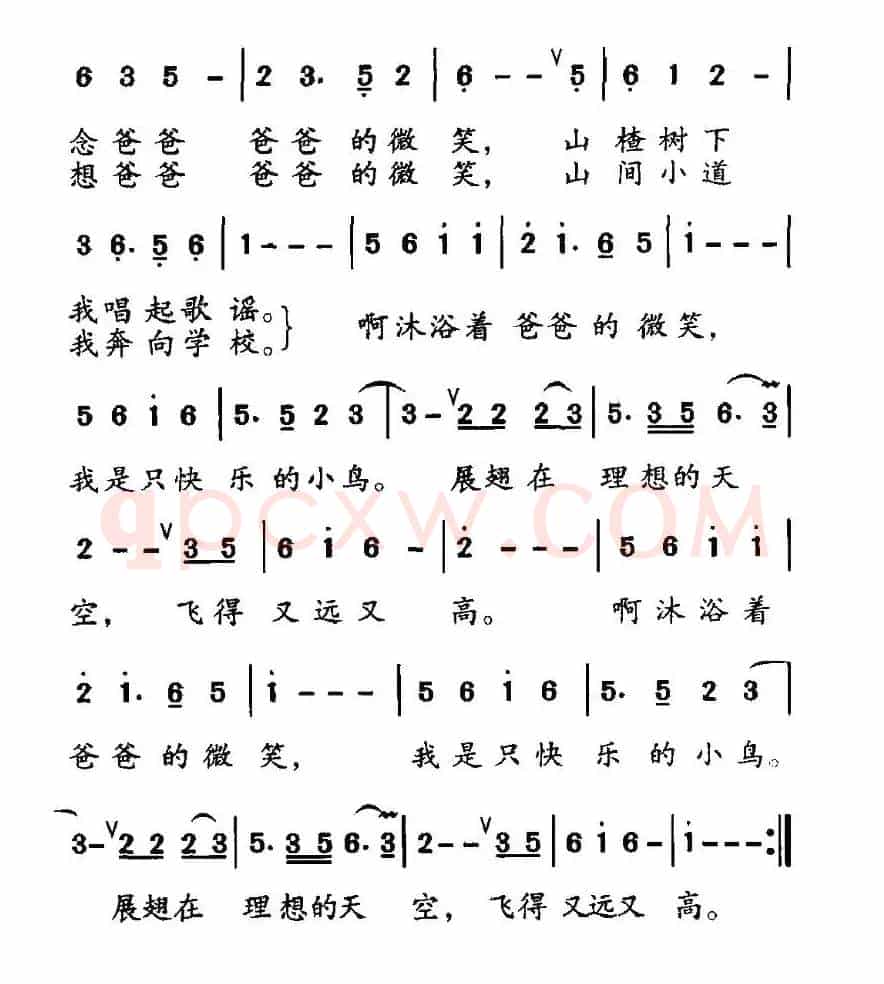 6 3 5 - | 2 3. 5 2 | 6 - - ∨ 5 | 6 1 2 - |
念爸爸 爸爸的微笑, 山楂树下
想爸爸 爸爸的微笑, 山间小道
3 6. 5 6 | 1 - - - | 5 6 i i | 2̇ i. 6 5 | i - - - |
我唱起歌谣。
我奔向学校。} 啊沐浴着爸爸的微笑,
5 6 i 6 | 5. 5 2 3 | 3 - ∨ 2 2 2 3 | 5. 3 5 6. 3 |
我是只快乐的小鸟。 展翅在 理想的天
qpcxw.COM
2 - - ∨ 3 5 | 6 i 6 - | 2̇ - - - | 5 6 i i |
空, 飞得又远又高。 啊沐浴着
2̇ i. 6 5 | i - - - | 5 6 i 6 | 5. 5 2 3 |
爸爸的微笑, 我是只快乐的小鸟。
3 - ∨ 2 2 2 3 | 5. 3 5 6. 3 | 2 - - ∨ 3 5 | 6 i 6 - | i - - - :||
展翅在 理想的天 空, 飞得又远又高。